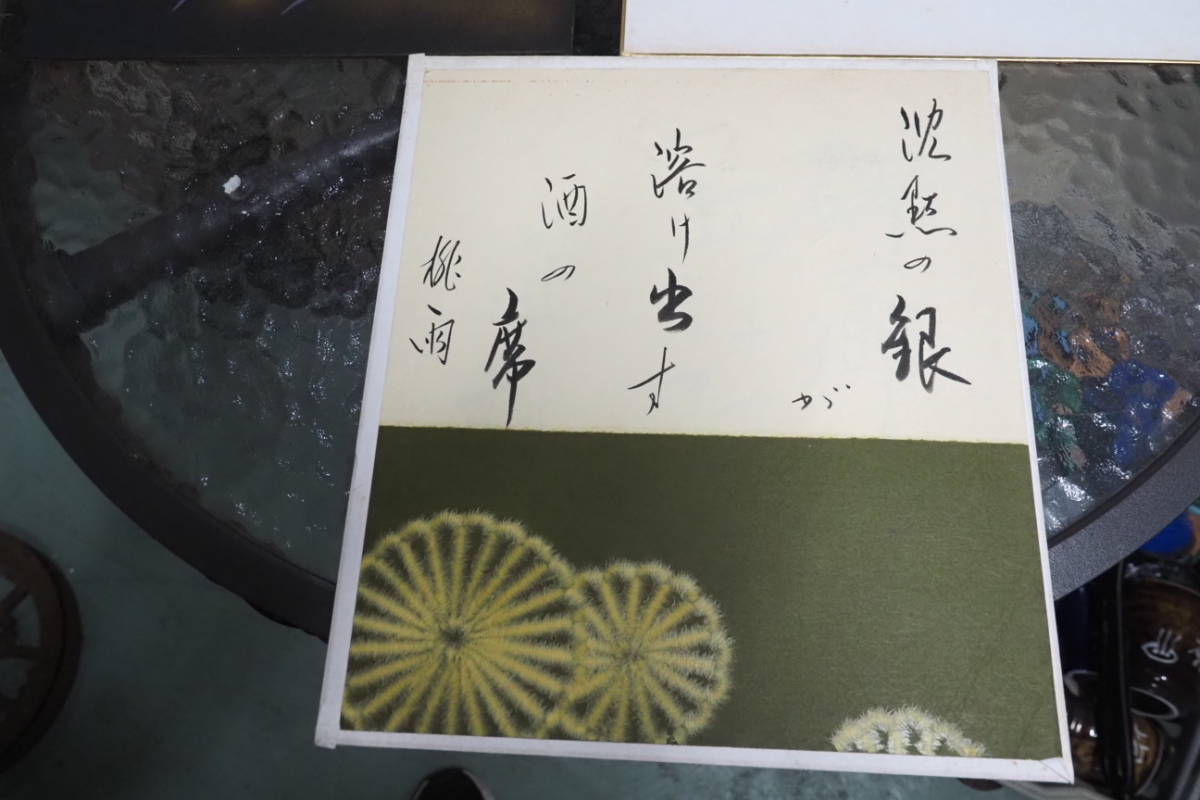 沈黙の銀
が
溶け出す
酒の
席
桃雨